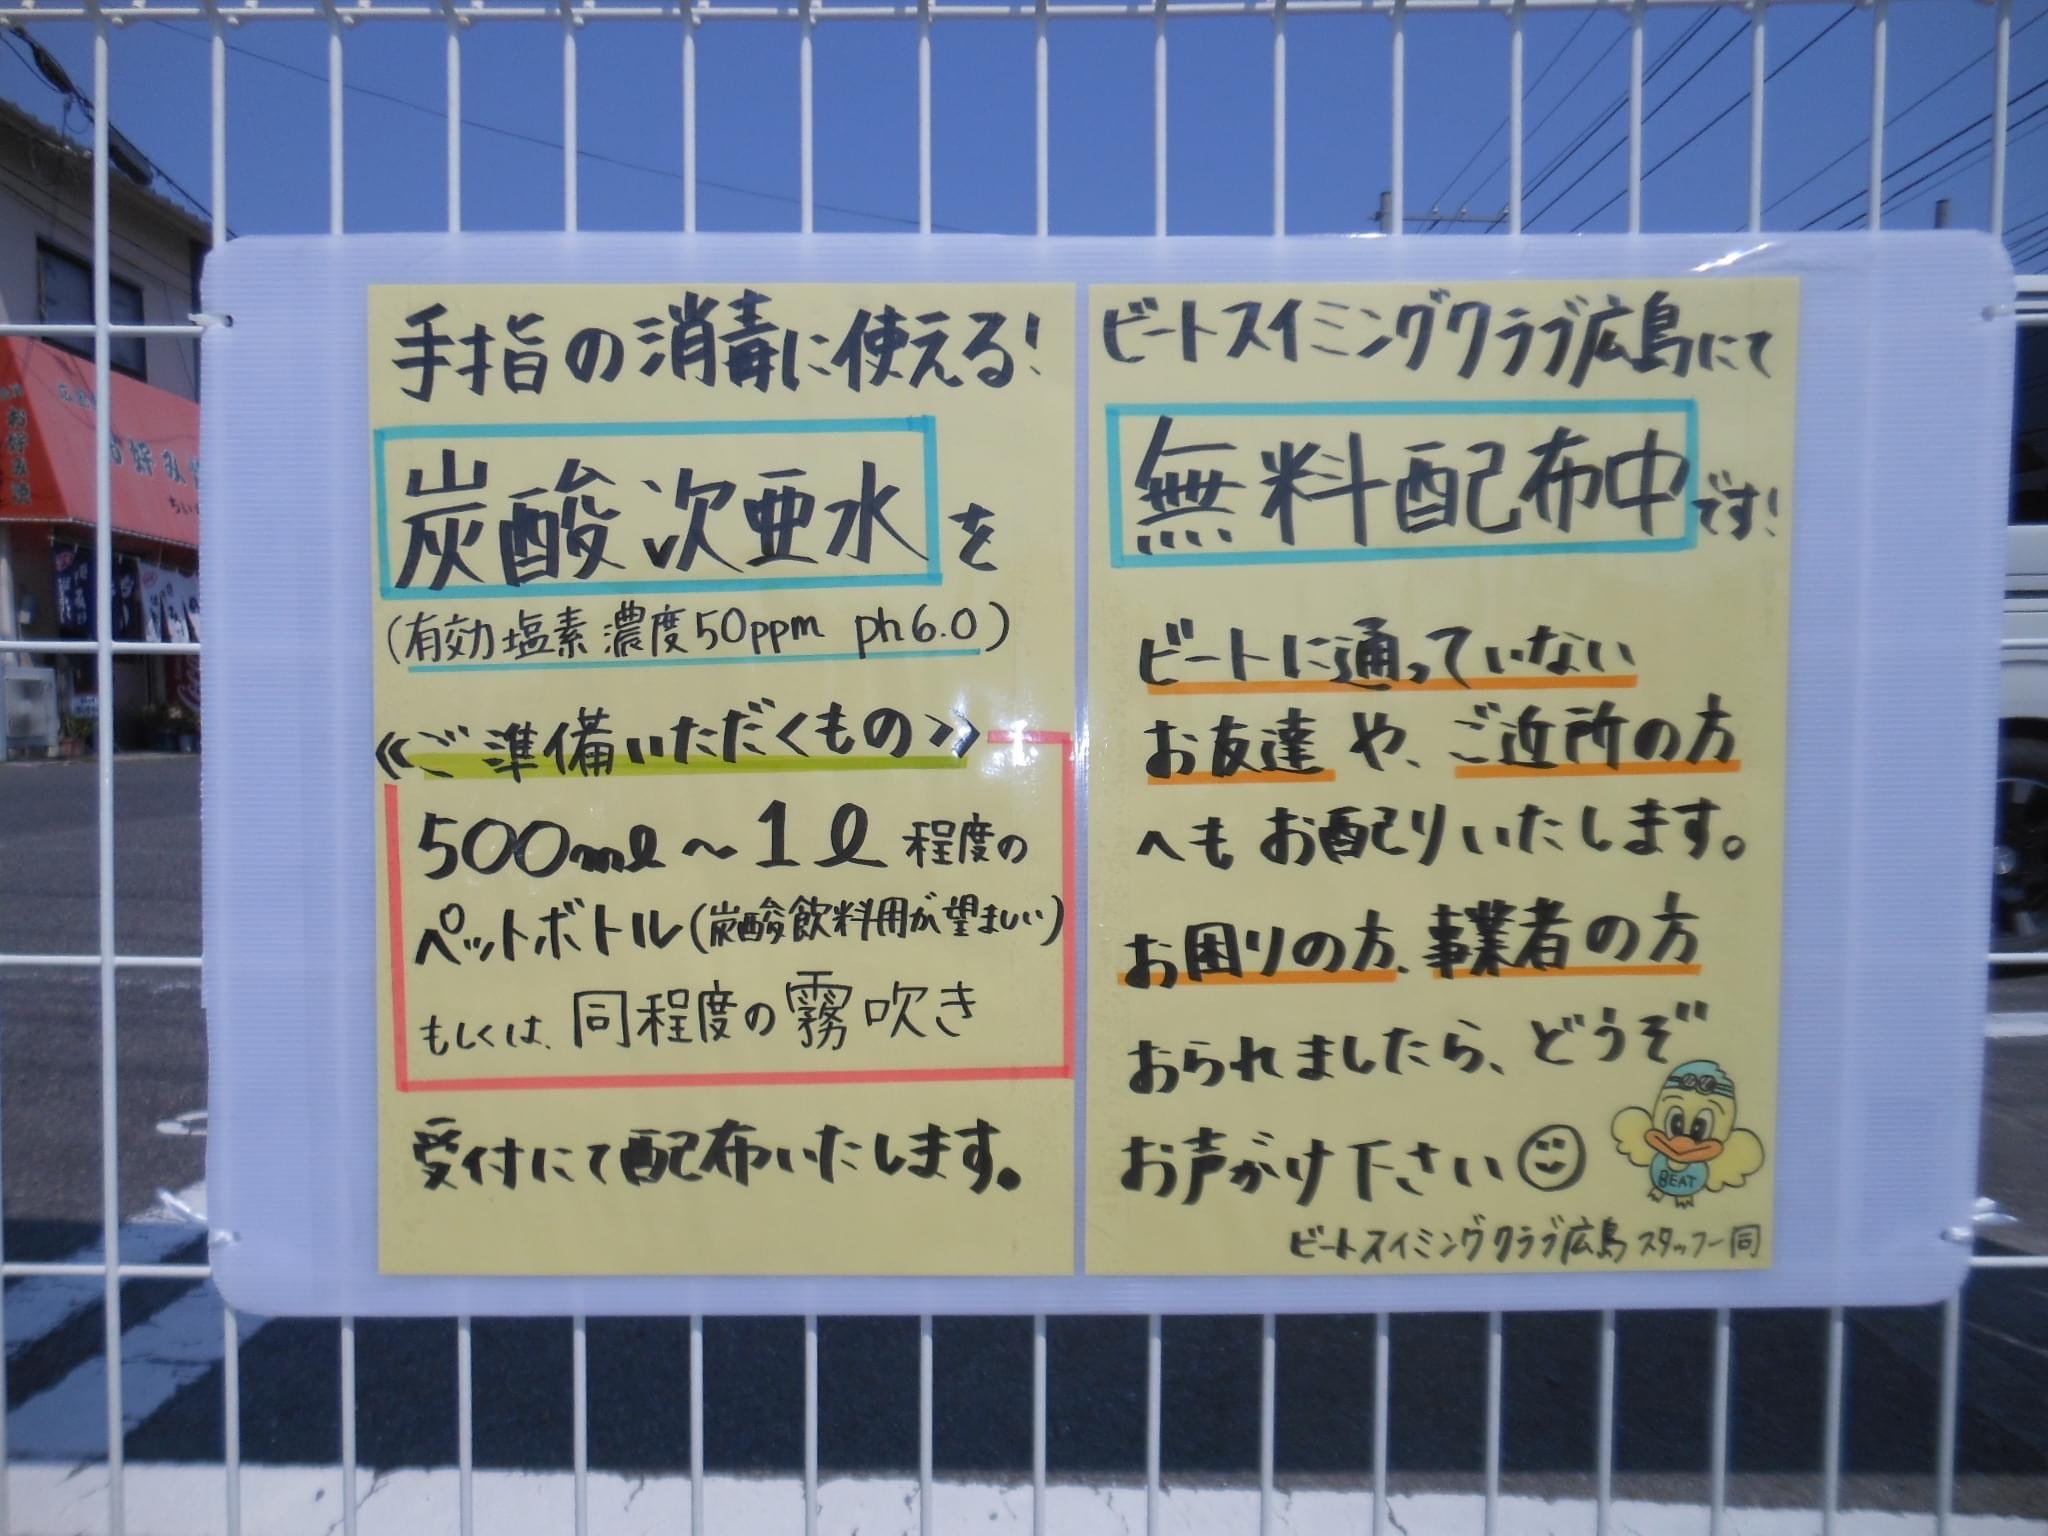 手指の消毒に使える!
炭酸次亜水を
(有効塩素濃度50ppm ph6.0)
《ご準備いただくもの》
500ml～1l程度の
ペットボトル(炭酸飲料用が望ましい)
もしくは、同程度の霧吹き
受付にて配布いたします。
ビートスイミングクラブ広島にて
無料配布中です!
ビートに通っていない
お友達や、ご近所の方
へもお配りいたします。
お困りの方、事業者の方
おられましたら、どうぞ
お声がけ下さい
BEAT
ビートスイミングクラブ広島スタッフ一同
お好み焼
お好み焼